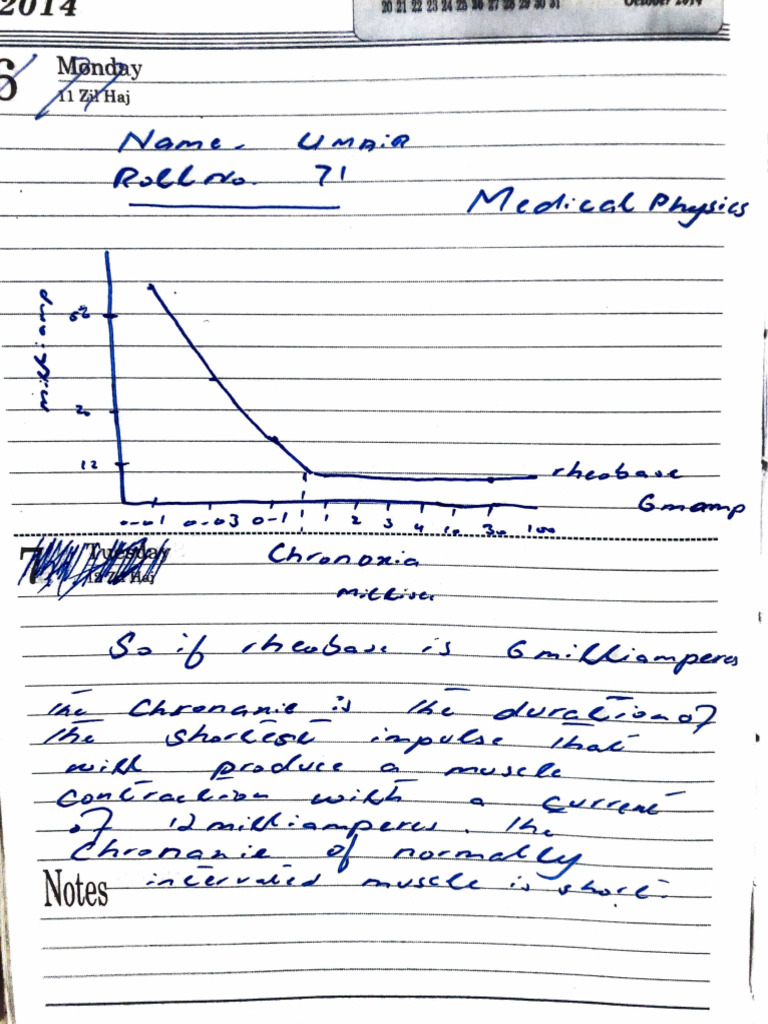 2014
20 21 22 23 24 25 26 27 28 29 30 31
October 2014
6 Monday
11 Zil Haj
Name. UMAIR
Roll No. 71
Medical Physics
milli:amp
20
12
rheobase
6 mamp
0-01 0-03 0-1 1 2 3 4 10 30 100
7 Tuesday
12 Zil Haj
Chronoxia
So if rheobase is 6 milliamperes
the Chronanie is the duration of
the shortest impulse that
with produce a muscle
contraction with a current
of 12 milliamperes. the
Chronanie of normally
Notes intervated muscle is short.